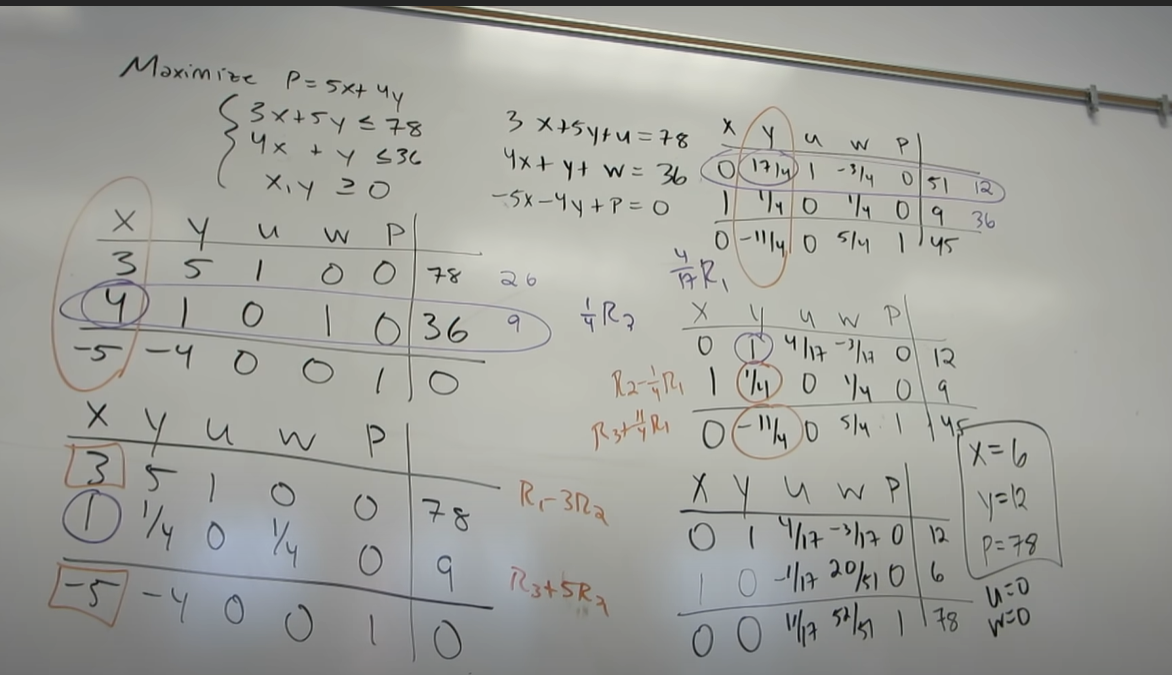 Maximize P=5x+4y
3x+5y≤78
4x + y ≤36
x,y ≥ 0
3x+5y+u=78
4x+y+w=36
-5x-4y+P=0
X y u w P
3 5 1 0 0 78 26
4 1 0 1 0 36 9
-5 -4 0 0 1 0
1/4 R2
X y u w P
3 5 1 0 0 78
1 1/4 0 1/4 0 9
-5 -4 0 0 1 0
R1-3R2
R3+5R2
X y u w P
0 17/4 1 -3/4 0 51 12
1 1/4 0 1/4 0 9 36
0 -11/4 0 5/4 1 45
4/17 R1
X y u w P
0 1 4/17 -3/17 0 12
1 1/4 0 1/4 0 9
0 -11/4 0 5/4 1 45
R2-1/4R1
R3+11/4R1
X y u w P
0 1 4/17 -3/17 0 12
1 0 -1/17 20/51 0 6
0 0 11/17 52/51 1 78
x=6
y=12
P=78
u=0
w=0